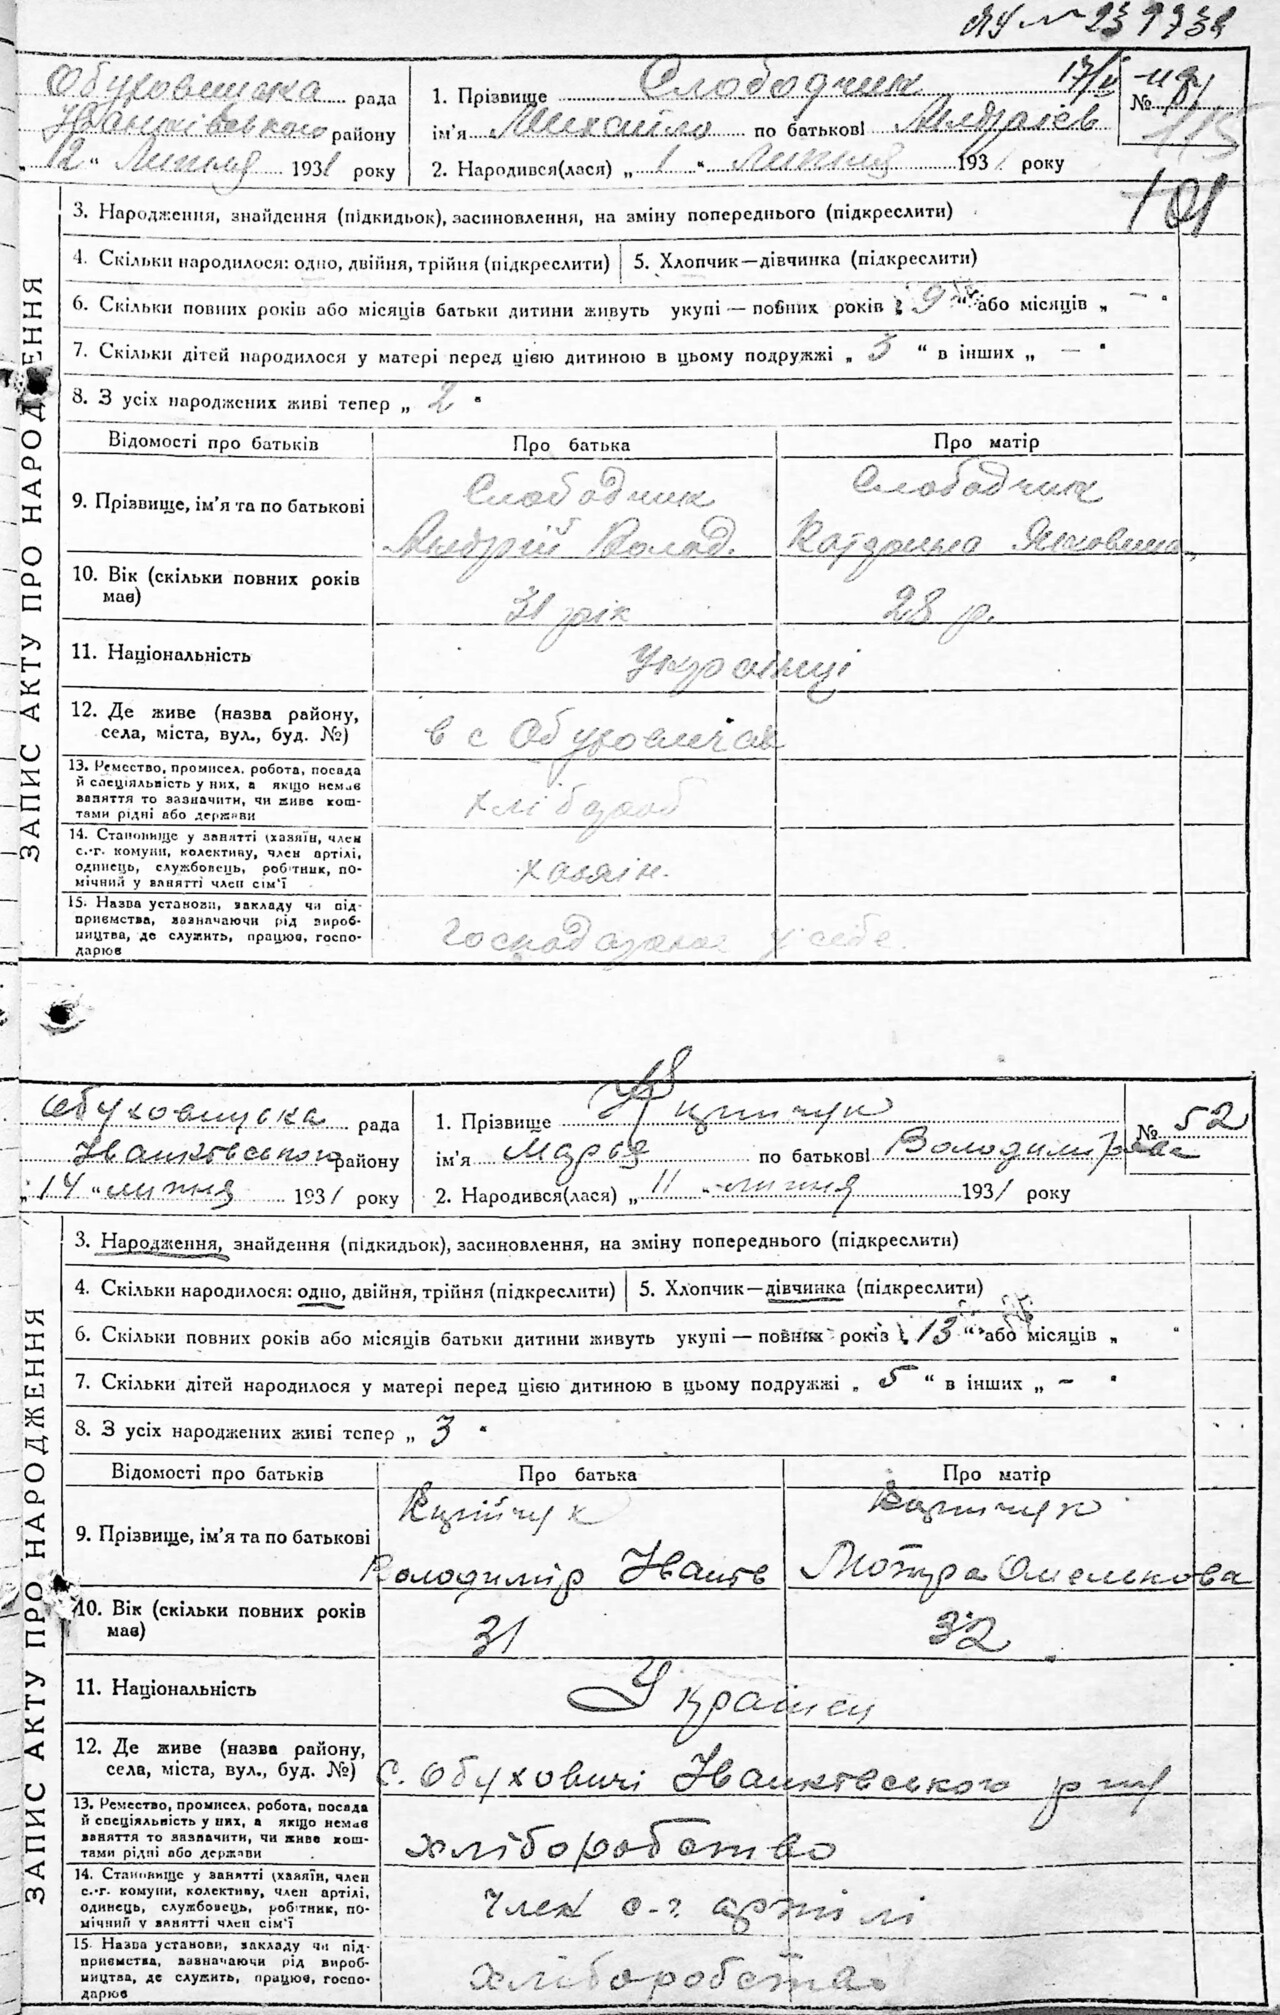 Обуховицька рада
Іванківського району
„12“ Липня 1931 року
1. Прізвище Слободчик
ім'я Михайло по батькові Андріїв
2. Народився(лася) „1“ Липня 1931 року
№
115
101
ЗАПИС АКТУ ПРО НАРОДЖЕННЯ
3. Народження, знайдення (підкидьок), засиновлення, на зміну попереднього (підкреслити)
4. Скільки народилося: одно, двійня, трійня (підкреслити) 5. Хлопчик—дівчинка (підкреслити)
6. Скільки повних років або місяців батьки дитини живуть укупі — повних років „9“ або місяців „—“
7. Скільки дітей народилося у матері перед цією дитиною в цьому подружжі „3“ в інших „—“
8. З усіх народжених живі тепер „2“
Відомості про батьків Про батька Про матір
9. Прізвище, ім'я та по батькові
Слободчик Слободчик
Андрій Волод.
10. Вік (скільки повних років має)
31 рік 28 р.
11. Національність Українці
12. Де живе (назва району, села, міста, вул., буд. №)
в с Обуховичах
13. Ремество, промисел, робота, посада
й спеціяльність у них, а якщо немає
заняття то зазначити, чи живе кош-
тами рідні або держави
хлібороб
14. Становище у занятті (хазяїн, член
с.-г. комуни, колективу, член артілі,
одинець, службовець, робітник, по-
мічний у занятті член сім'ї
хазяїн.
15. Назва установи, закладу чи під-
приємства, зазначаючи рід вироб-
ництва, де служить, працює, госпо-
дарює
Господарює у себе.
Обуховицька рада
Іванківського району
„14“ липня 1931 року
1. Прізвище Куцийчук
ім'я Мар'я по батькові Володимирова
2. Народився(лася) „11“ липня 1931 року
№ 52
ЗАПИС АКТУ ПРО НАРОДЖЕННЯ
3. Народження, знайдення (підкидьок), засиновлення, на зміну попереднього (підкреслити)
4. Скільки народилося: одно, двійня, трійня (підкреслити) 5. Хлопчик—дівчинка (підкреслити)
6. Скільки повних років або місяців батьки дитини живуть укупі — повних років „13“ або місяців „ “
7. Скільки дітей народилося у матері перед цією дитиною в цьому подружжі „5“ в інших „—“
8. З усіх народжених живі тепер „3“
Відомості про батьків Про батька Про матір
9. Прізвище, ім'я та по батькові
Володимір Іванів Мотря Омелькова
10. Вік (скільки повних років має)
31 32
11. Національність Українец
12. Де живе (назва району, села, міста, вул., буд. №)
с. Обуховичі Іванківського р-ну
13. Ремество, промисел, робота, посада
й спеціяльність у них, а якщо немає
заняття то зазначити, чи живе кош-
тами рідні або держави
хліборобство
14. Становище у занятті (хазяїн, член
с.-г. комуни, колективу, член артілі,
одинець, службовець, робітник, по-
мічний у занятті член сім'ї
член с-г артілі
15. Назва установи, закладу чи під-
приємства, зазначаючи рід вироб-
ництва, де служить, працює, госпо-
дарює
хліборобства